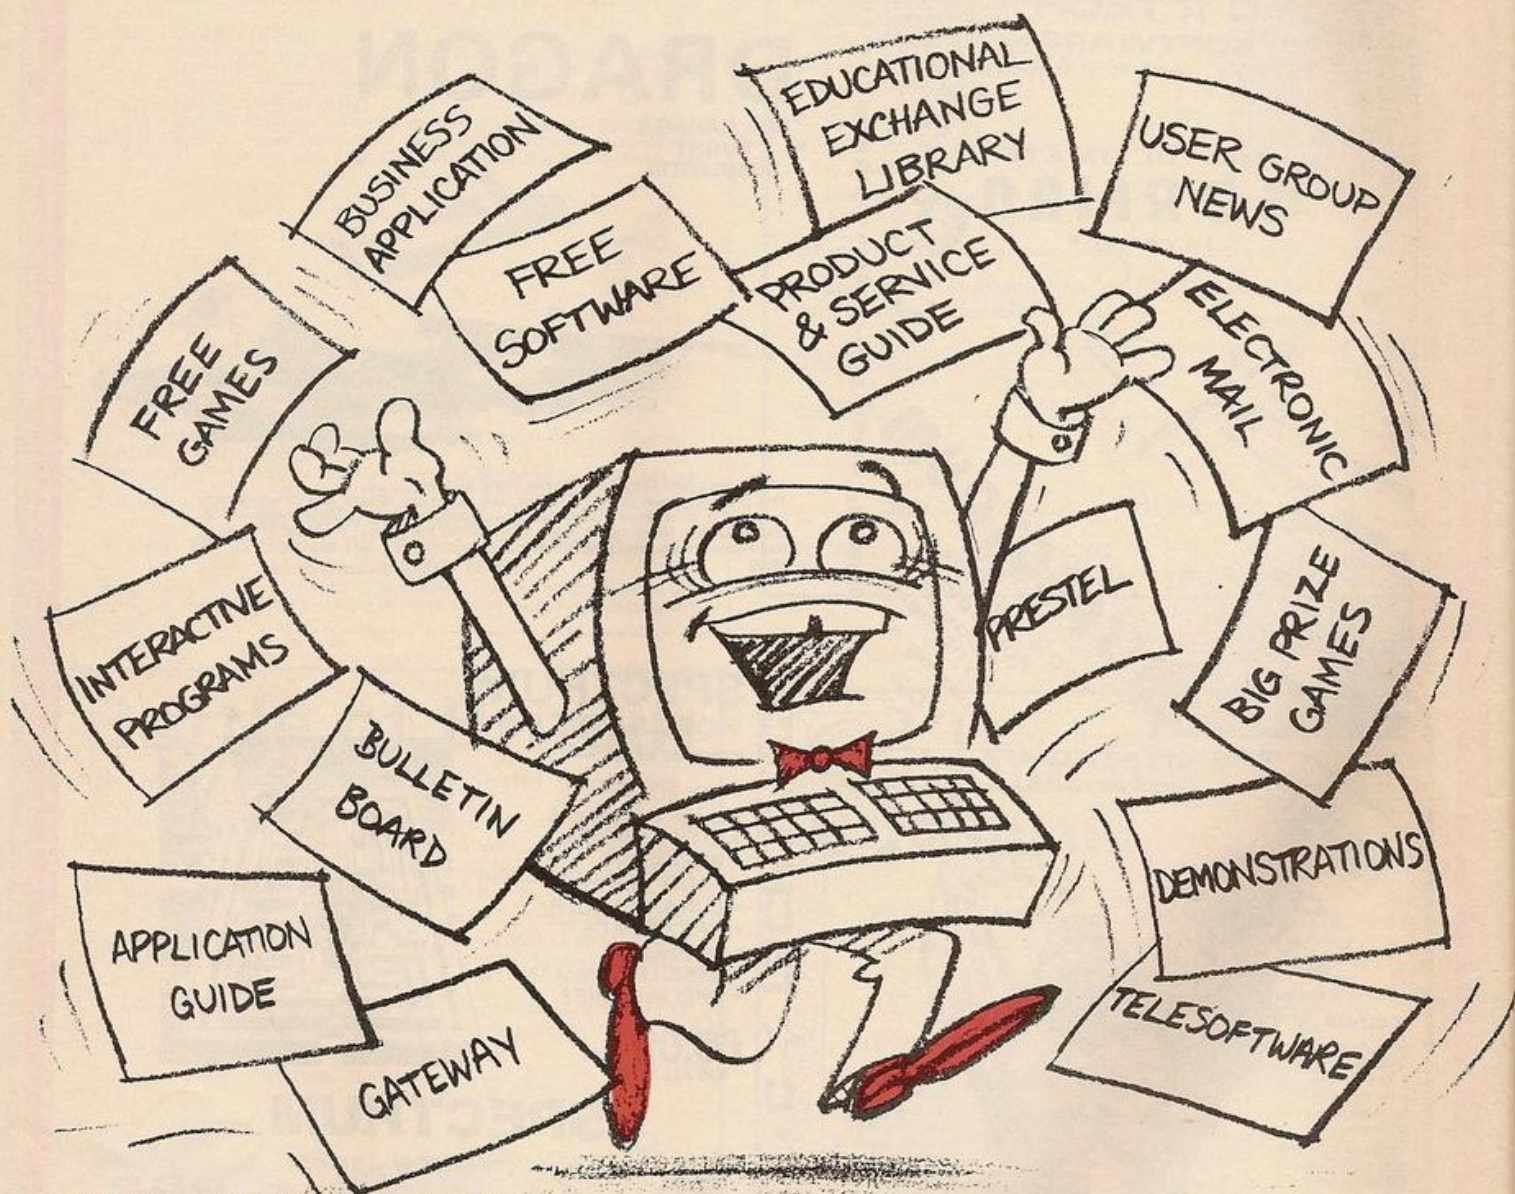 BUSINESS
APPLICATION
EDUCATIONAL
EXCHANGE
LIBRARY
USER GROUP
NEWS
FREE
SOFTWARE
PRODUCT
& SERVICE
GUIDE
FREE
GAMES
ELECTRONIC
MAIL
INTERACTIVE
PROGRAMS
PRESTEL
BIG PRIZE
GAMES
BULLETIN
BOARD
DEMONSTRATIONS
APPLICATION
GUIDE
GATEWAY
TELESOFTWARE
DRAGON